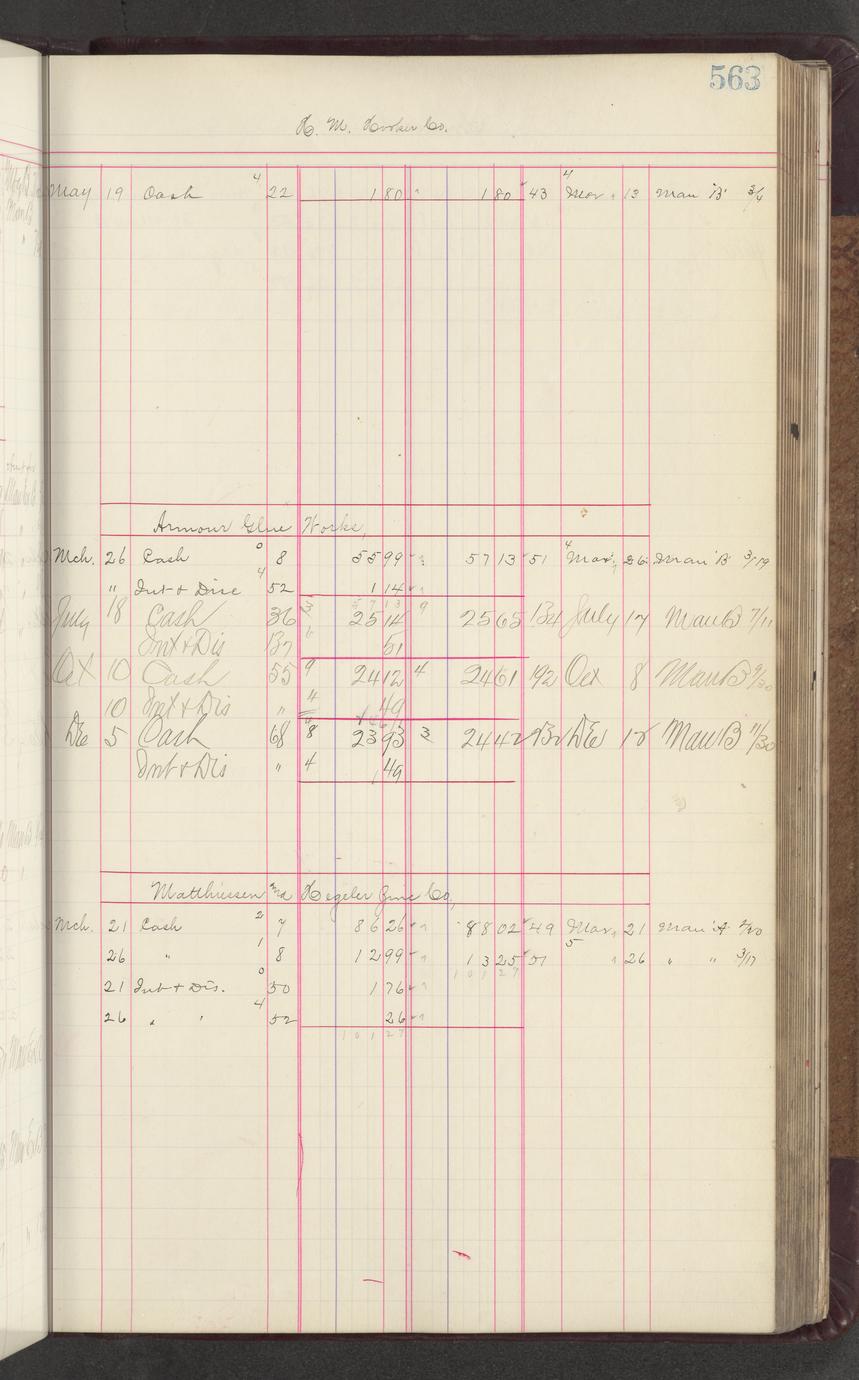 563
H. M. Hooker Co.
May 19 Cash 4 22 1 80 1 80 43 4 Mar 13 Man "B" 3/4
Armour Glue Works,
Mch. 26 Cash 0 8 55 99 57 13 51 4 Mar. 26 Man "B" 3/19
" Int & Disc 4 52 1 14
57 13
July 18 Cash 36 25 14 9 25 65 134 July 17 Man B 7/11
Int & Dis 137 51
Oct 10 Cash 55 9 24 12 4 24 61 192 Oct 8 Man B 9/30
10 Int & Dis " 4 49
De 5 Cash 68 8 23 93 3 24 42 De Man B 11/30
Int & Dis " 4 49
Matthiessen and Hegeler Zinc Co,
Mch. 21 Cash 2 7 86 26 88 02 49 Mar, 21 Man "A"
26 " 1 8 12 99 13 25 51 5 " 26 " " 3/17
101 27
21 Int & Dis. 0 50 1 76
26 " " 4 52 26
101 27